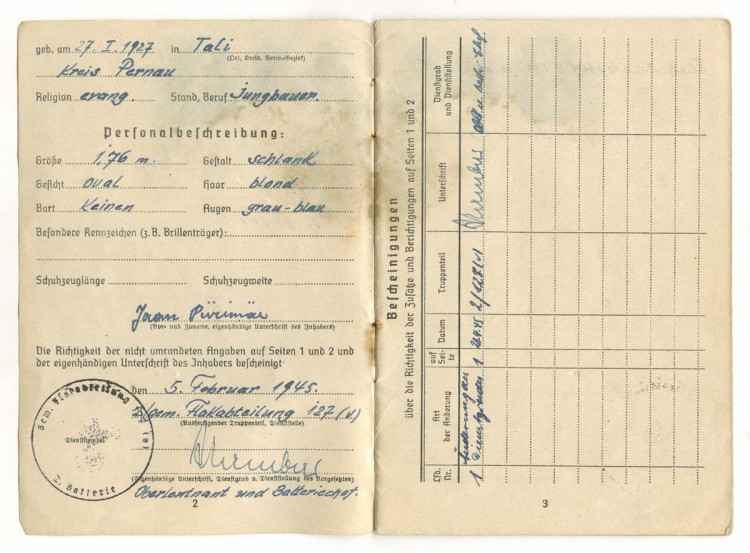 geb. am 27. I. 1927 in Tali
(Ort, Kreis, Verw.-Bezirk)
Kreis Pernau
Religion evang. Stand, Beruf Jungbauer.
Personalbeschreibung:
Größe 1,76 m. Gestalt schlank
Gesicht oval Haar blond
Bart Keinen Augen grau-blau
Besondere Kennzeichen (z. B. Brillenträger):
Schuhzeuglänge Schuhzeugweite
Jaan Pürimäe
(Vor- und Zuname, eigenhändige Unterschrift des Inhabers)
Die Richtigkeit der nicht umrandeten Angaben auf Seiten 1 und 2 und
der eigenhändigen Unterschrift des Inhabers bescheinigt
den 5. Februar 1945.
2/gem. Flakabteilung 127 (v)
(Ausfertigender Truppenteil, Dienststelle)
Gem. Flakabteilung 127 (v)
Dienststempel
2. Batterie
(Eigenhändige Unterschrift, Dienstgrad u. Dienststellung des Vorgesetzten)
Oberleutnant und Batteriechef.
2
Bescheinigungen
über die Richtigkeit der Zusätze und Berichtigungen auf Seiten 1 und 2
Lfd. Nr.
Art der Änderung
auf Seite
Datum
Truppenteil
Unterschrift
Dienstgrad und Dienststellung
1
Änderung an
Dienstgraden
1.
2/127 (v)
3